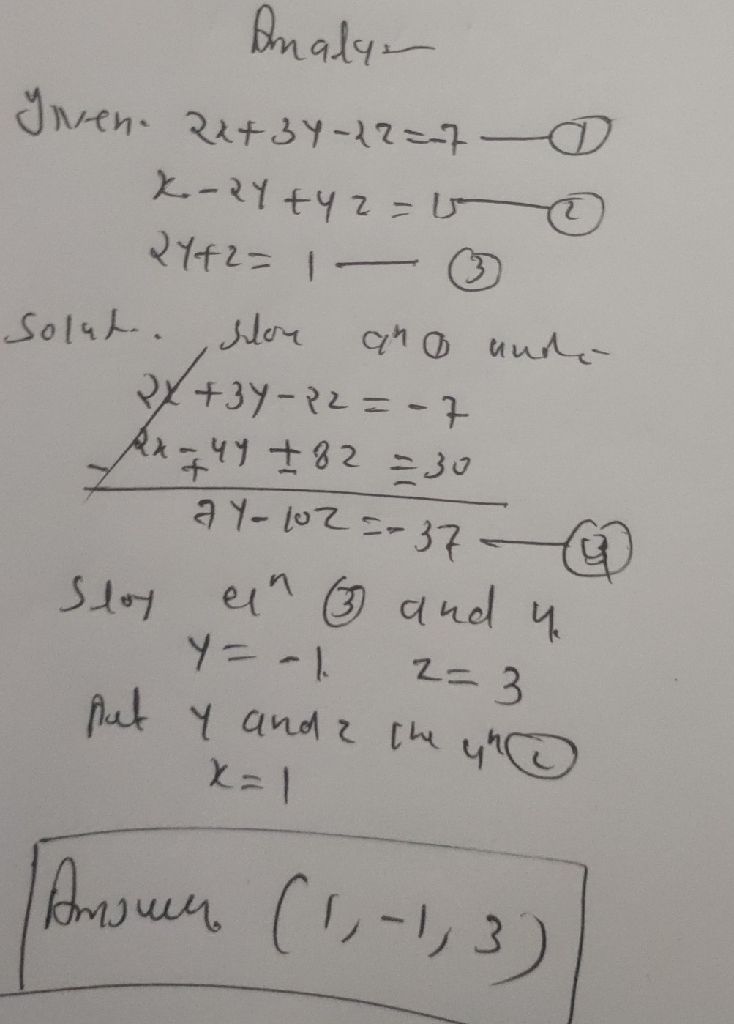 Given. 2x+3y-2z=-7 — ①
x-2y+4z=15 — ②
2y+z=1 — ③
Solut.
2x+3y-2z=-7
- 2x-4y+8z=30
7y-10z=-37 — ④
③ and 4
y=-1. z=3
Put y and z the ②
x=1
Answer (1,-1,3)